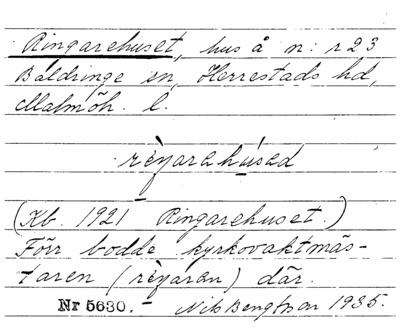 Ringarehuset, hus å n: r 23
Baldringe sn, Herrestads hd,
Malmöh. l.
rèŋarehúsed
(Kb. 1921 Ringarehuset.)
Förr bodde kyrkovaktmäs-
taren (rèŋaren) där.
Nr 5630. – Nils Bengtsson 1935.